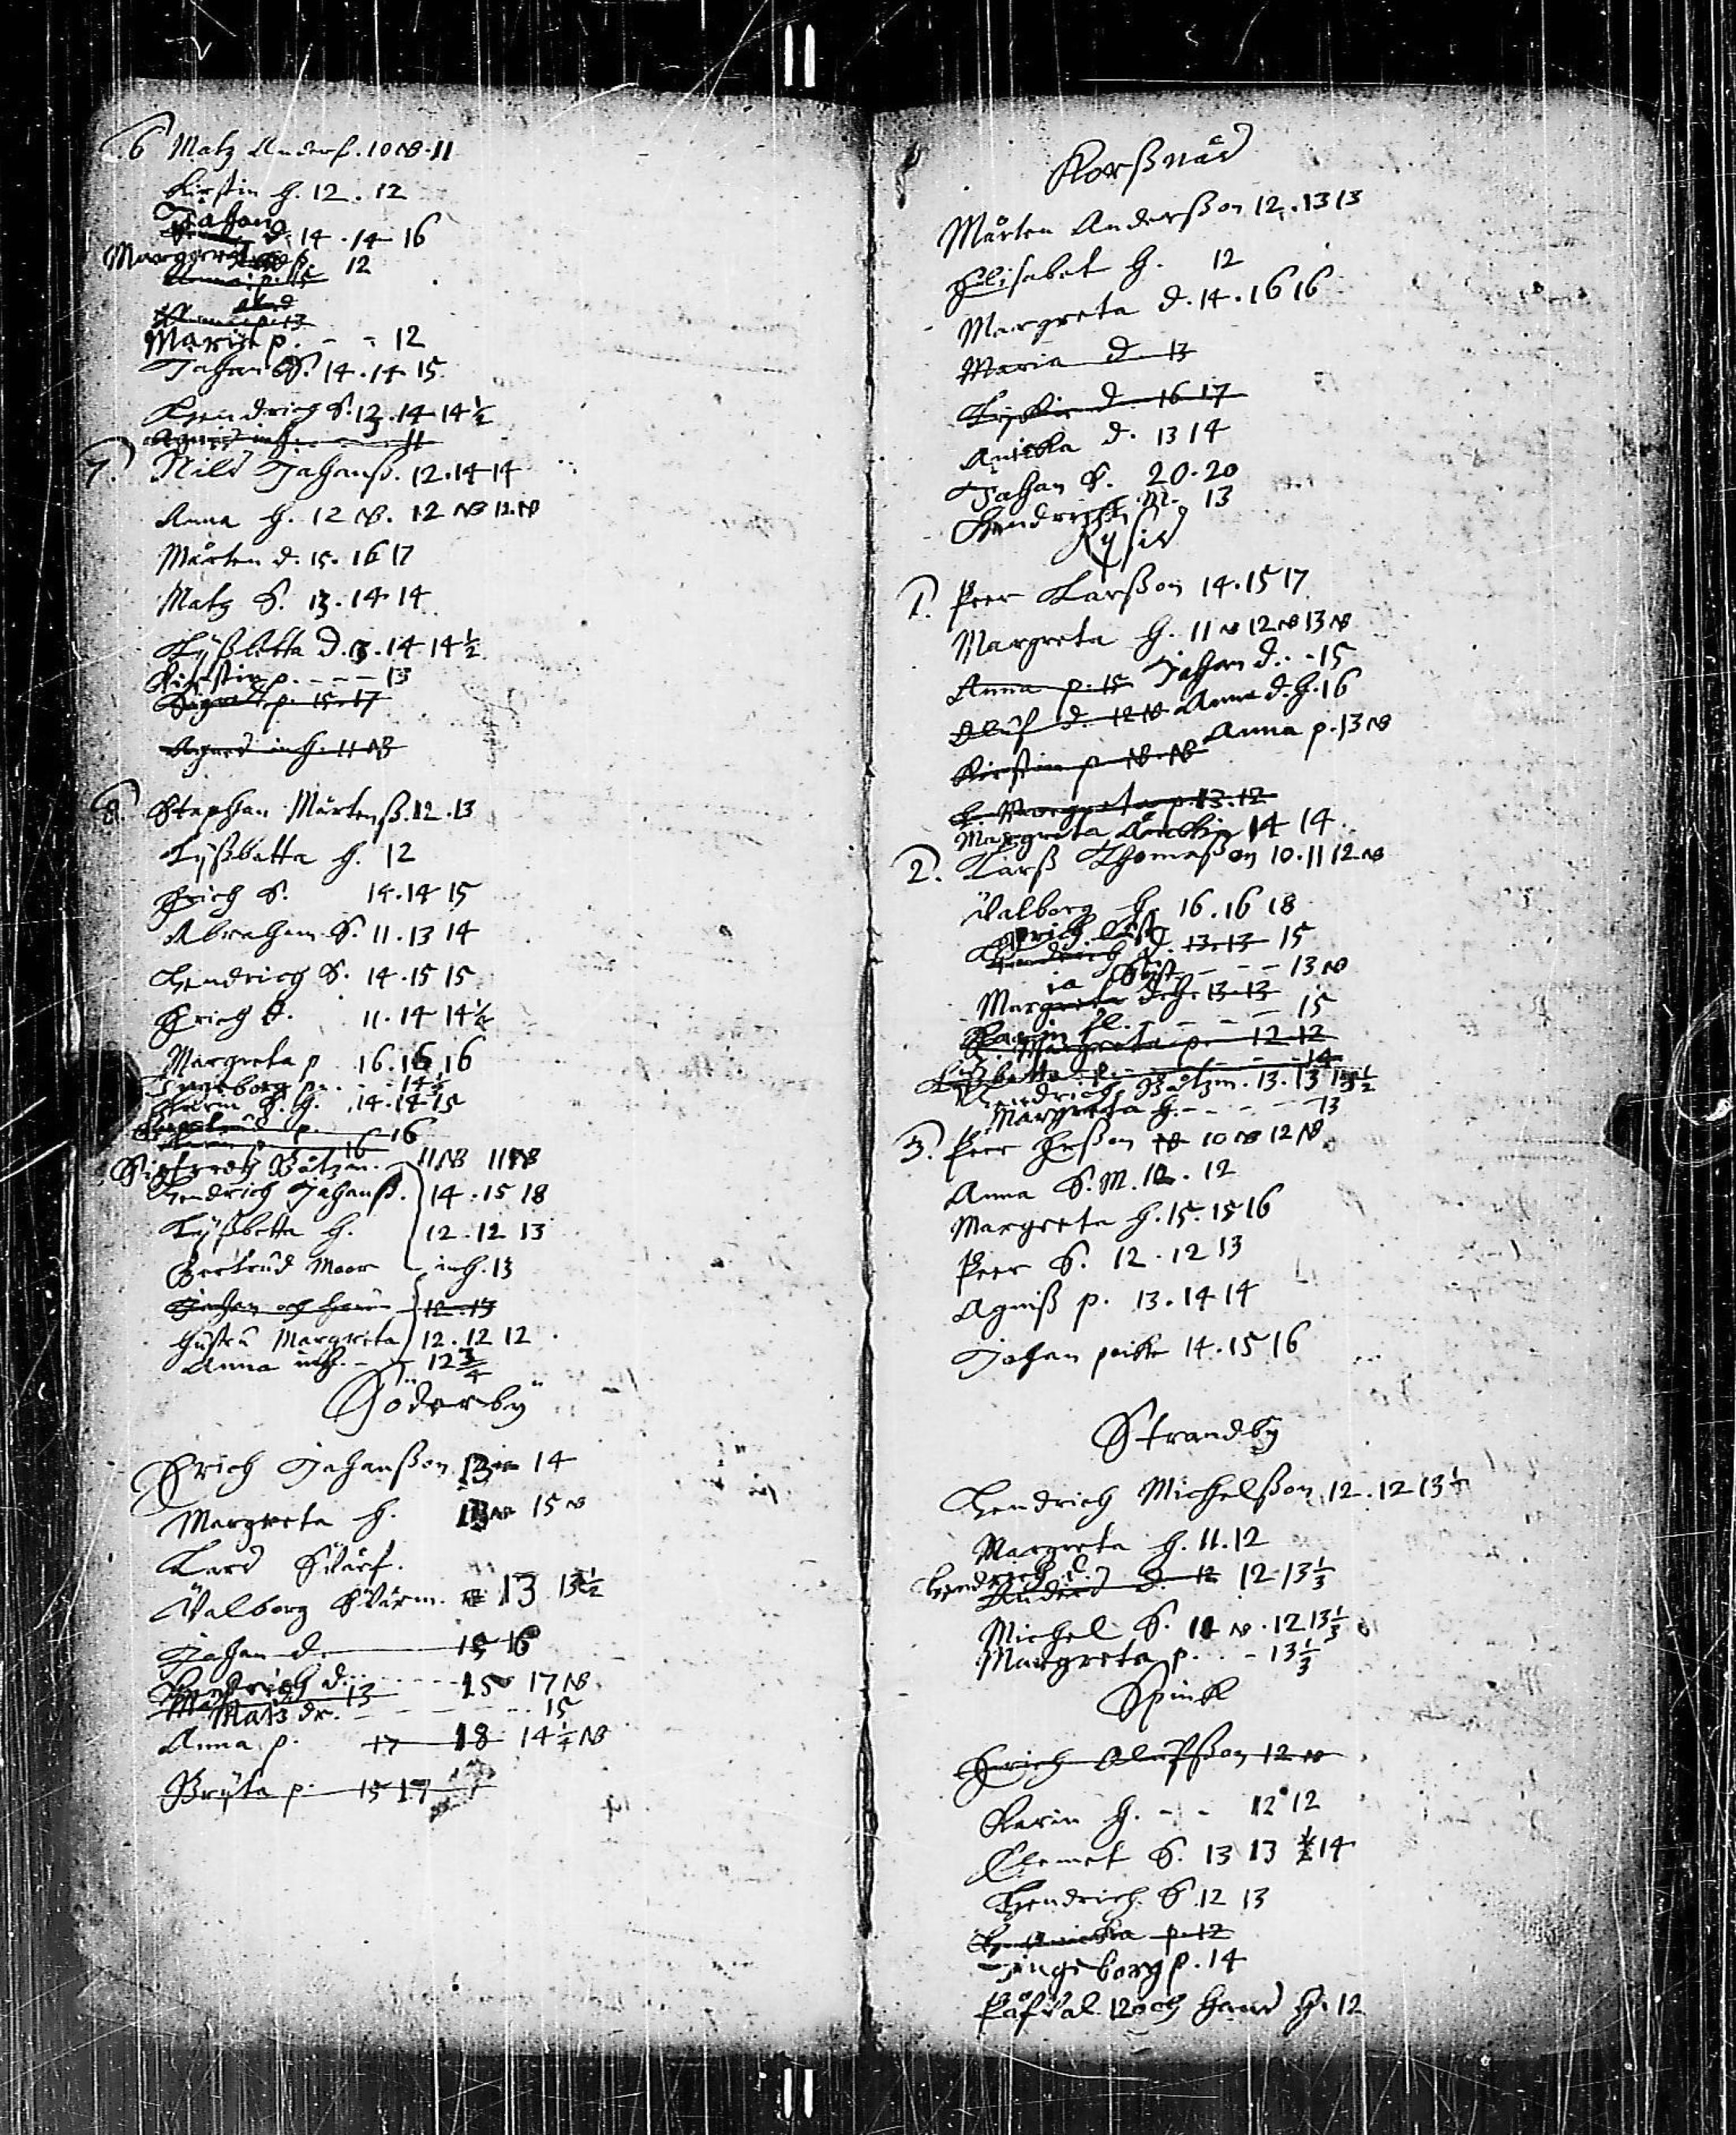 6 Matz Anderß. 10 NB. 11
Kirstin h. 12 . 12
Johan
d. 14 . 14 16
Margreta p. 12
Anna p. 15
p. 13
Marit p. - - 12
Johan S. 14 . 14 15
Hendrich S. 13 . 14 14½
Agnes inh. 11
7. Nils Johanß. 12 . 14 14
Anna h. 12 NB. 12 NB 12 NB
Mårten d. 15. 16 17
Matz S. 13 . 14 14
Lyßbetta d. 13 . 14 14½
Kirstin p. - - - 13
Sigred p. 15 . 17
Agnes inh. 11 NB
8. Stephan Mårtenß. 12 . 13
Lyßbetta h. 12
Erich S. 14 . 14 15
Abraham S. 11 . 13 14
Hendrich S. 14 . 15 15
Erich d. 11 . 14 14½
Margreta p 16 . 16 16
Ingeborg p. - - 14½
Karin S. h. 14 . 14 15
p. 16
Karin p. 16
Sigfredh Båtzm. 11 NB 11 NB
Hendrich Johanß. 14 . 15 18
Lyßbetta h. 12 . 12 13
Gertrud Moor inh. 13
Johan och hans 12 . 13
hustru Margreta 12 . 12 12
Anna inh. - 12¾
Söderby
Erich Johanßon 13 14
Margreta h. 13 NB 15 NB
Lars Svärf.
Valborg Svärm. 13 13½
Johan d. 15 16
Hendrich d. 15 17 NB
13
Mats dr. - - - - 15
Anna p. 17 18 14½ NB
Bryta p. 15 17
Korßnäs
Mårten Anderßon 12 . 13 13
Elisabet h. 12
Margreta d. 14 . 16 16
Maria d. 13
d. 16 17
Anicka d. 13 14
Johan S. 20 . 20
Hendrich M. 13
Rysis
1. Peer Larßon 14 . 15 17
Margreta h. 11 NB 12 NB 13 NB
Anna p. 15 Johan d. - 15
Oluf d. 12 NB Anna d. h. 16
Kirstin p NB NB Anna p. 13 NB
h. Margreta p. 13 . 12
Margreta Änckia 14 14
2. Larß Thomaßon 10 . 11 12 NB
Valborg h. 16 . 16 18
Erich
Hendrich d. 13 . 13 15
- - - 13 NB
Margreta d. h. 13 . 13
Karin fl. - - - - 15
Margreta p. 12 12
Lyßbetta p. 14
Hendrich Båtzm. 13 . 13 13½
Margreta h. - - - 13
3. Peer Erßon 10 NB 12 NB
Anna S. M. 12 . 12
Margreta h. 15 . 15 16
Peer S. 12 . 12 13
Agniß p. 13 . 14 14
Johan poike 14 . 15 16
Strandby
Hendrich Michelßon 12 . 12 13½
Margreta h. 11 . 12
Hendrich d.
Anders d. 12 12 13⅓
Michel S. 11 NB . 12 13⅓
Margreta p. . - 13⅓
Spink
Erich Olufßon 12 NB
Karin h. - - 12 12
Clemet S. 13 13 ½ 14
Hendrich S. 12 13
Annicka p. 12
Ingeborg p. 14
Påfval 12 och hans h. 12